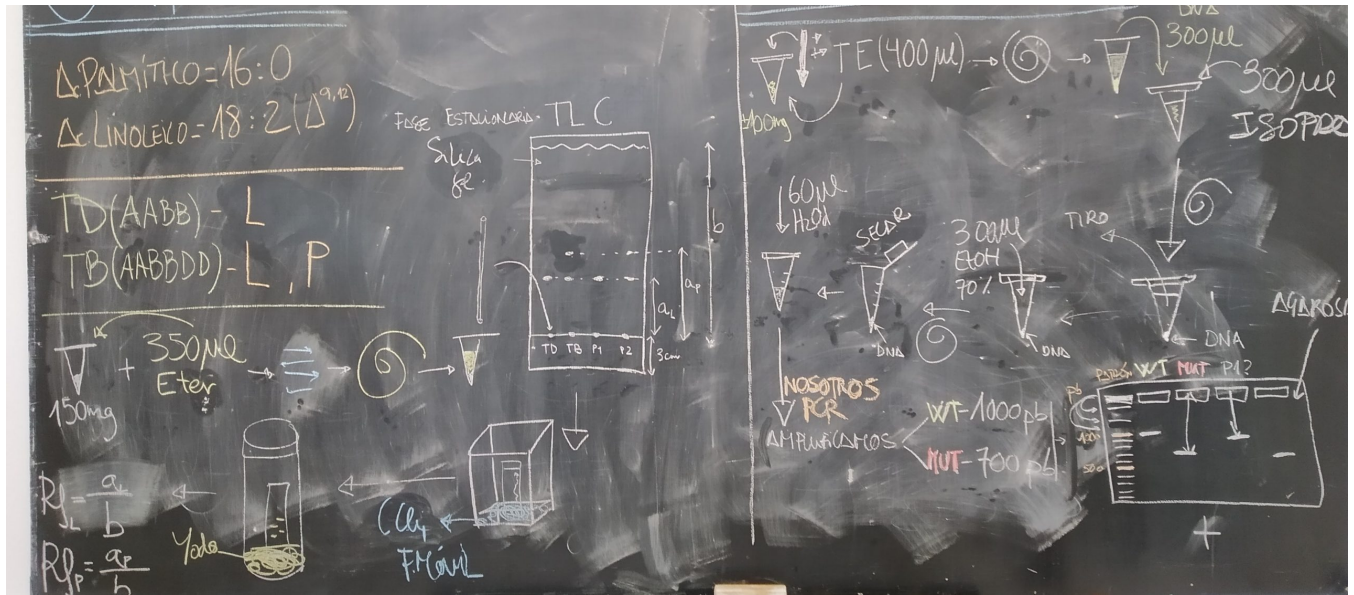 A. PALMÍTICO = 16:0
A. LINOLEICO = 18:2 (Δ9,12)
TD (AABB) - L
TB (AABBDD) - L, P
150mg
+
350µl
Eter
FASE ESTACIONARIA
TLC
Silica
gel
TD TB P1 P2
aL
aP
b
3cm
CCl4
F. MÓVIL
Yodo
RfL = aL/b
RfP = aP/b
100mg
TE (400µl)
DNA
300µl
300µl
ISOPRO
TIRO
DNA
300µl
EtOH
70%
DNA
SECAR
DNA
60µl
H2Od
NOSOTROS
PCR
AMPLIFICAMOS
WT - 1000 pb
MUT - 700 pb
AGAROSA
pb
PATRÓN WT MUT P1?
500
+